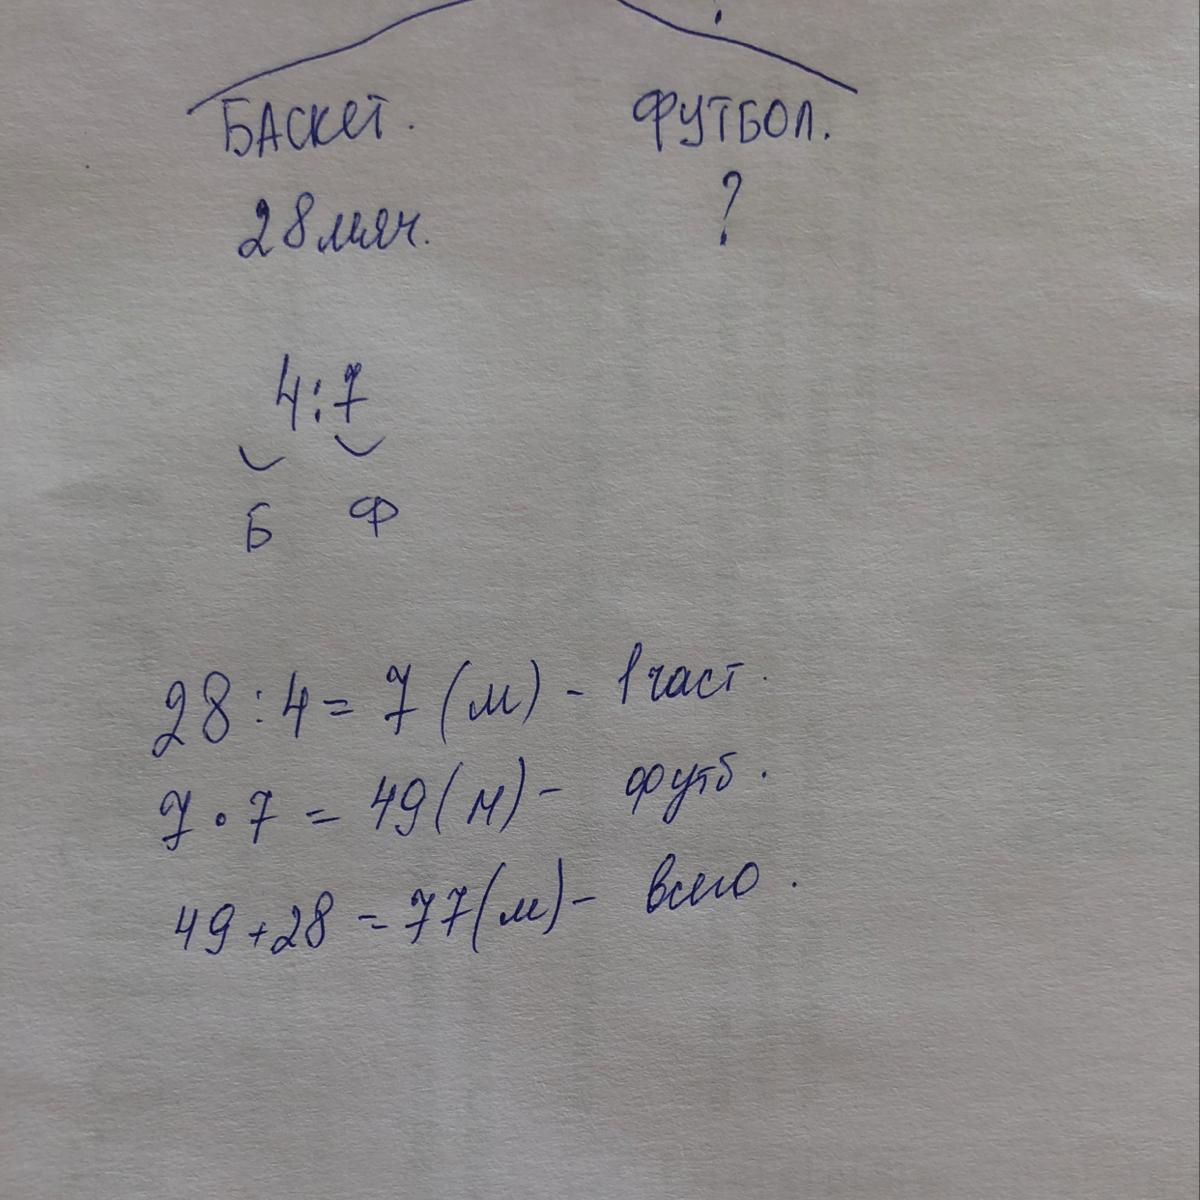 БАСКЕТ. ФУТБОЛ.
28 мяч. ?
4:7
Б Ф
28:4 = 7 (м) - 1 част.
7 • 7 = 49 (м) - футб.
49 + 28 = 77 (м) - всего.